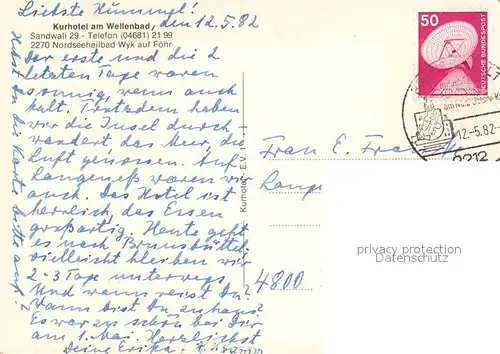 Liebste Hümmel!
Kurhotel am Wellenbad, den 12.5.82
Sandwall 29 - Telefon (04681) 21 99
2270 Nordseeheilbad Wyk auf Föhr
Der erste und die 2
letzten Tage waren
sonnig, wenn auch
kalt. Trotzdem haben
wir die Insel durch
wandert, das Meer, die
Luft genossen. Auf
Langeneß waren wir
auch. Das Hotel ist
herrlich, das Essen
großartig. Heute geht
es nach Brunsbüttel
vielleicht bleiben wir
2-3 Tage unterwegs
Und wann reist Du?
Wann bist Du zuhaus?
Es war so schön bei Dir
am 1. Mai. Herzlichst
Deine Erika
Hast Du die Karte bitte auf?
Kurhotel E.V. 1
50
DEUTSCHE BUNDESPOST
12-5.82-
2212
Frau E. Fra
Lange
4800
privacy protection
Datenschutz